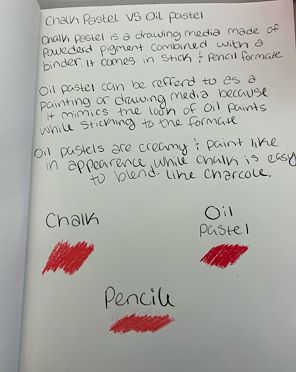 Chalk Pastel VS Oil pastel
Chalk pastel is a drawing media made of
powederd pigment combined with a
binder. it comes in stick & pencil formate
Oil pastel can be refferd to as a
painting or drawing media because
it mimics the look of Oil paints
while sticking to the formate
Oil pastels are creamy & paint like
in appearence, while chalk is easy
to blend. like charcole.
Chalk
Oil
Pastel
Pencile